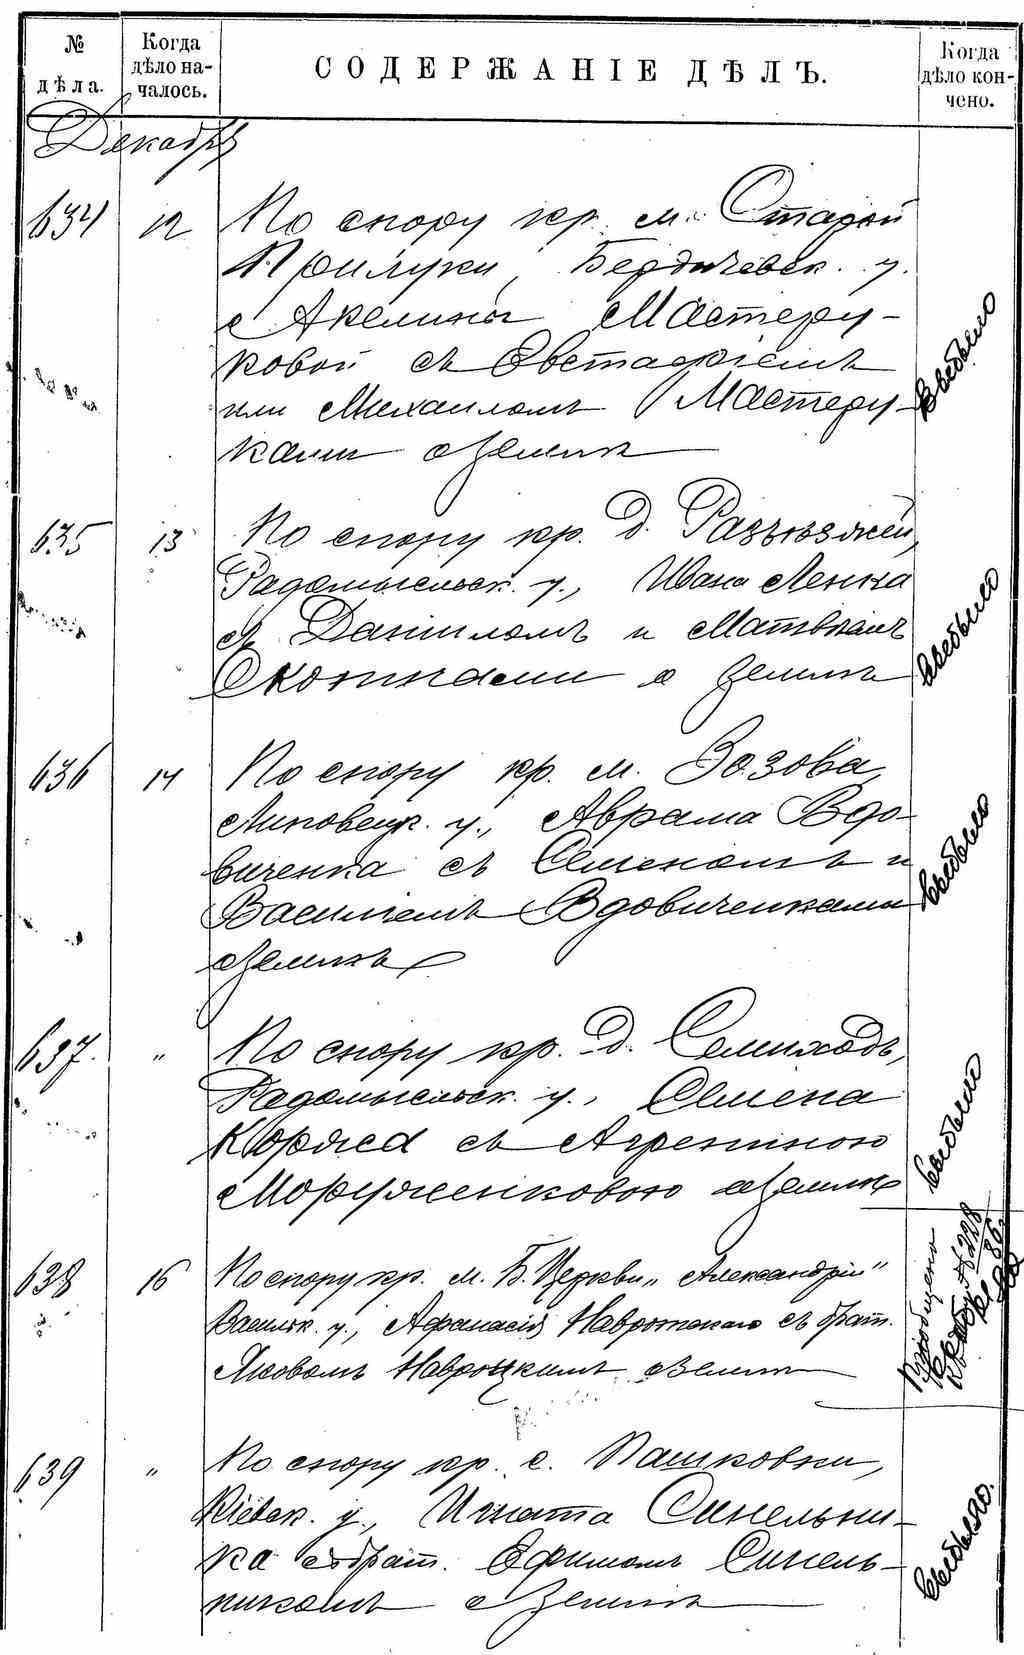 № дѣла.
Когда дѣло началось.
СОДЕРЖАНІЕ ДѢЛЪ.
Когда дѣло кончено.
Декабрь
634 12 По спору кр. м. Старой
Прилуки, Бердичевск. у.
Акелины Мастеру-
ковой съ Евстафіемъ
или Михаиломъ Мастеру-
ками о землѣ
выбыло
635 13 По спору кр. д.
Радомысльск. у., Ивана Ленка
съ Даніиломъ и Матвѣемъ
о землѣ
выбыло
636 14 По спору кр. м. Зозова,
Липовецк. у., Аврама Вдо-
виченка съ Семеномъ и
Василіемъ Вдовиченками
о землѣ
выбыло
637 " По спору кр. д. Семиходъ,
Радомысльск. у., Семена
Коржа съ Агрепиною
о землѣ
выбыло
638 16 По спору кр. м. Б. Церкви „Александріи"
Васильк. у., Афанасія Навроцкаго съ брат.
Яковомъ Навроцкимъ о землѣ
Пріобщено
639 " По спору кр. с. Пашковки,
Кіевск. у., Игната Синельни-
ка съ брат. Ефимомъ Синель-
никомъ о землѣ
выбыло.